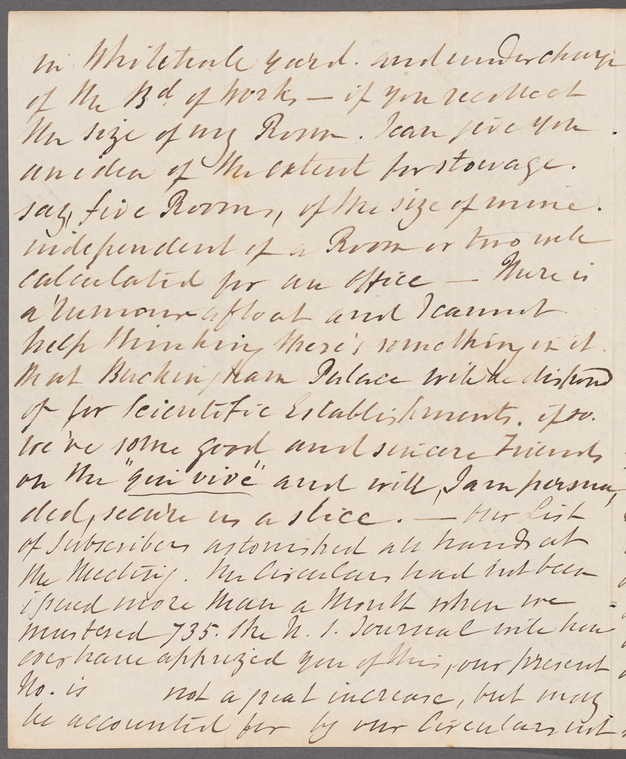 in Whitehale yard. and under charge
of the Bd of Works — if you recollect
the size of my Room. I can give you
an idea of the extent for stowage.
say, five Rooms, of the size of mine.
independent of a Room or two well
calculated for an office — There is
a rumour afloat and I cannot
help thinking there's something in it
that Buckingham Palace will be disposed
of for Scientific Establishments. if so.
we've some good and sincere Friends
on the "qui vive" and will, I am persua,
ded, secure us a slice. — Our List
of Subscribers astonished all hands at
the Meeting. The Circulars had not been
issued more than a Month when we
mustered 735. The U. S. Journal will how
ever have apprized you of this, our present
No. is not a great increase, but may
be accounted for by our Circulars not